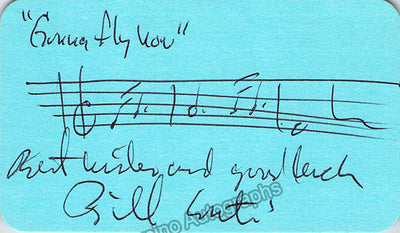 "Gonna Fly Now"
Best wishes and good luck
Bill Conti